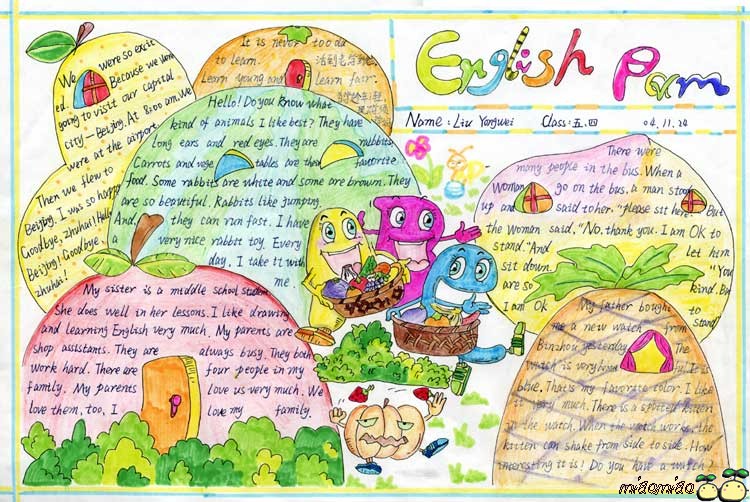 English Pam
Name: Liu Yangwei Class: 五.四 04.11.24
We were so excit
ed. Because we were
going to visit our capital
city-Beijing. At 8:00 am. We
were at the airport.
Then we flew to
Beijing. I was so happy
Goodbye, Zhuhai! Hello
Beijing! Goodbye,
Zhuhai!
It is never too da
to learn. 活到老学到老
Learn young and learn fair.
Hello! Do you know what
kind of animals I like best? They have
long ears and red eyes. They are rabbits
Carrots and vege tables are their favorite
food. Some rabbits are white and some are brown. They
are so beautiful. Rabbits like jumping.
And, they can run fast. I have
a very nice rabbit toy. Every
day, I take it with
me.
My sister is a middle school student
She does well in her lessons. I like drawing
and learning English very much. My parents are
shop assistants. They are always busy. They both
work hard. There are four people in my
family. My parents love us very much. We
love them, too, I love my family.
There were
many people in the bus. When a
Woman go on the bus, a man stood
up and said to her. "please sit here. But
the Woman said, "No, thank you. I am OK to
stand" And let him
sit down. "You
are so kind. But
I am Ok to
stand"
My father bought
me a new watch from
Binzhou yesterday. The
watch is very beautiful. It is
blue. That's my favorite color. I like
it very much. There is a spotted kitten
in the watch. When the watch works, the
kitten can shake from side to side. How
interesting it is! Do you have a watch?
miaomiao